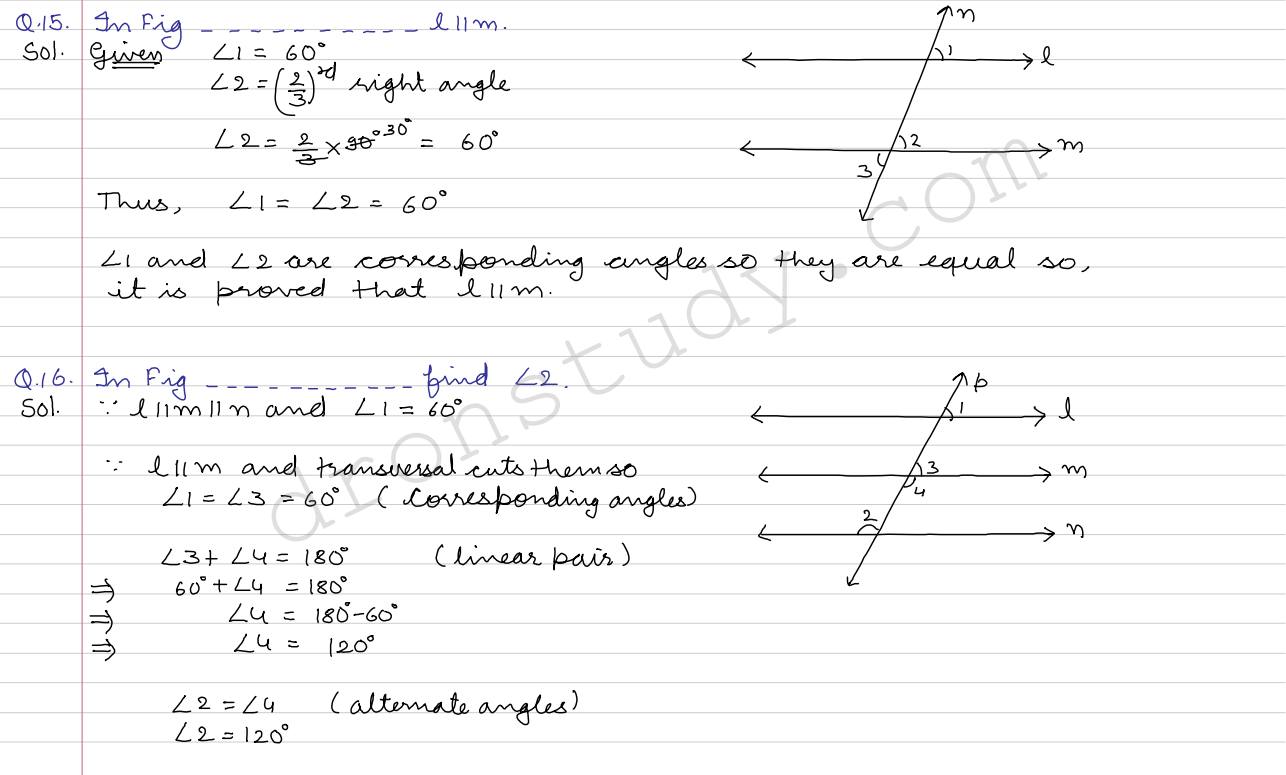 Q.15. In Fig ____________ l ∥ m.
Sol. Given ∠1 = 60°
∠2 = (2/3)^rd right angle
∠2 = 2/3 × 90° 30° = 60°
Thus, ∠1 = ∠2 = 60°
∠1 and ∠2 are corresponding angles so they are equal so,
it is proved that l ∥ m.
n
1
l
2
m
3
Q.16. In Fig ____________ find ∠2.
Sol. ∵ l ∥ m ∥ n and ∠1 = 60°
∵ l ∥ m and transversal cuts them so
∠1 = ∠3 = 60° (corresponding angles)
∠3 + ∠4 = 180° (linear pair)
⇒ 60° + ∠4 = 180°
⇒ ∠4 = 180° - 60°
⇒ ∠4 = 120°
∠2 = ∠4 (alternate angles)
∠2 = 120°
p
1
l
3
m
4
2
n
dronstudy.com